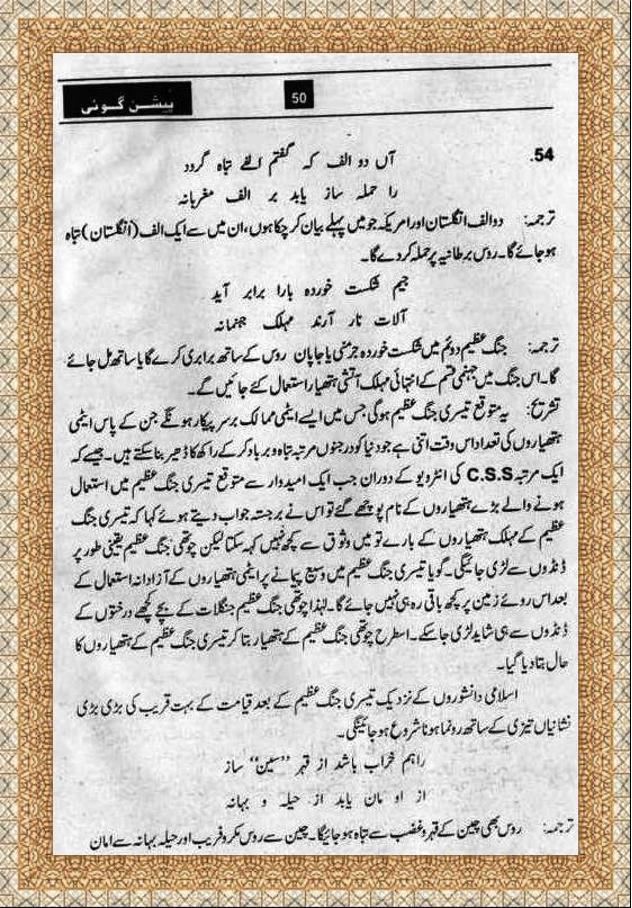 پیشن گوئی
50
54.
آں دو الف کہ گفتم الفے تباہ گردد
را حملہ ساز یابد بر الف مغربانہ
ترجمہ: دو الف انگلستان اور امریکہ جو میں پہلے بیان کر چکا ہوں، ان میں سے ایک الف (انگلستان) تباہ
ہو جائے گا۔ روس برطانیہ پر حملہ کر دے گا۔
جیم شکست خوردہ بارا برابر آید
آلات نار آرند مہلک جہنمانہ
ترجمہ: جنگ عظیم دوئم میں شکست خوردہ جرمنی یا جاپان روس کے ساتھ برابری کرے گا یا ساتھ مل جائے
گا۔ اس جنگ میں جہنمی قسم کے انتہائی مہلک آتشی ہتھیار استعمال کئے جائیں گے۔
تشریح: یہ متوقع تیسری جنگ عظیم ہوگی جس میں ایسے ایٹمی ممالک برسر پیکار ہونگے جن کے پاس ایٹمی
ہتھیاروں کی تعداد اس وقت اتنی ہے جو دنیا کو درجنوں مرتبہ تباہ و برباد کر کے راکھ کا ڈھیر بنا سکتے ہیں۔ جیسے کہ
ایک مرتبہ C.S.S کی انٹرویو کے دوران جب ایک امیدوار سے متوقع تیسری جنگ عظیم میں استعمال
ہونے والے بڑے ہتھیاروں کے نام پوچھے گئے تو اس نے برجستہ جواب دیتے ہوئے کہا کہ تیسری جنگ
عظیم کے مہلک ہتھیاروں کے بارے تو میں وثوق سے کچھ نہیں کہہ سکتا لیکن چوتھی جنگ عظیم یقینی طور پر
ڈنڈوں سے لڑی جائیگی۔ گویا تیسری جنگ عظیم میں وسیع پیمانے پر ایٹمی ہتھیاروں کے آزادانہ استعمال کے
بعد اس روئے زمین پر کچھ باقی رہ ہی نہیں جائے گا۔ لہٰذا چوتھی جنگ عظیم جنگلات کے بچے کھچے درختوں کے
ڈنڈوں سے ہی شاید لڑی جا سکے۔ اسطرح چوتھی جنگ عظیم کے ہتھیار بتا کر تیسری جنگ عظیم کے ہتھیاروں کا
حال بتا دیا گیا۔
اسلامی دانشوروں کے نزدیک تیسری جنگ عظیم کے بعد قیامت کے بہت قریب کی بڑی بڑی
نشانیاں تیزی کے ساتھ رونما ہونا شروع ہو جائینگی۔
راہم خراب باشد از قہر ”سین“ ساز
از او مان یابد از حیلہ و بہانہ
ترجمہ: روس بھی چین کے قہر و غضب سے تباہ ہو جائیگا۔ چین سے روس مکر و فریب اور حیلہ بہانہ سے امان